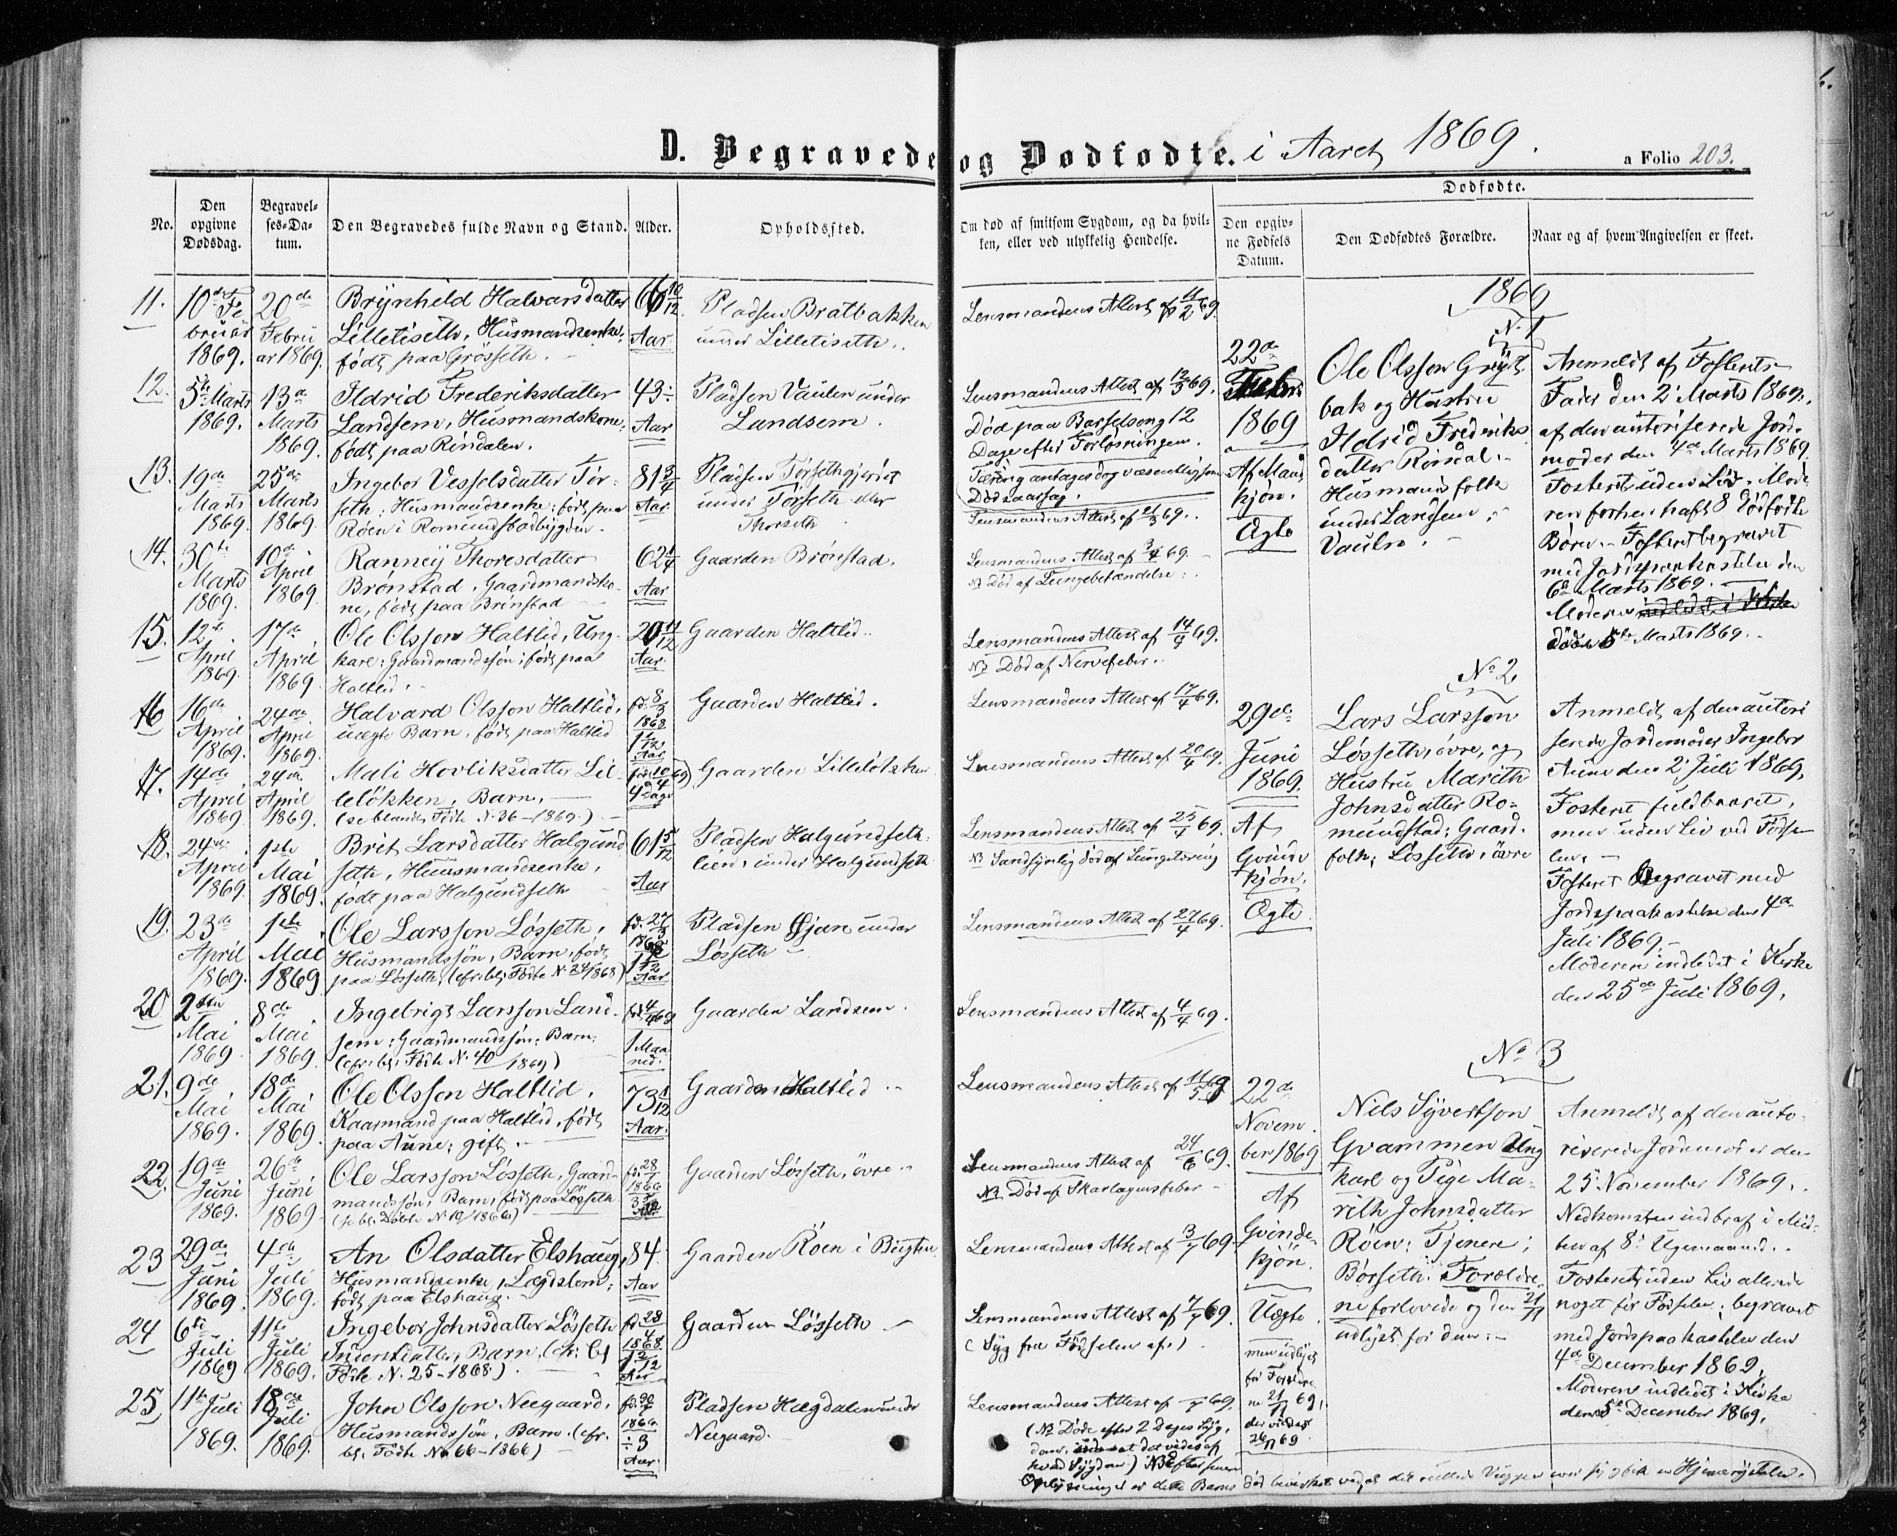 D. Begravede og Dødfødte. i Aaret 1869.
a Folio 203.
No.
Den opgivne Dødsdag.
Begravelses-Datum.
Den Begravedes fulde Navn og Stand.
Alder.
Opholdssted.
Om død af smitsom Sygdom, og da hvilken, eller ved ulykkelig Hendelse.
Dødfødte.
Den opgivne Fødsels Datum.
Den Dødfødtes Forældre.
Naar og af hvem Angivelsen er skeet.
11. 10de Februar 1869. 20de Februar 1869. Brynhild Halvarsdatter
Lilletiseth, Husmandsenke,
født paa Grøsseth.
66 10/12 Aar
Pladsen Bratbakken
under Lilletiseth.
Lensmandens Attest af 11/2 69.
12. 5te Marts 1869. 13de Marts 1869. Ildrid Frederiksdatter
Landsem, Husmandskone,
født paa Rindalen.
43 Aar
Pladsen Vaulen under
Landsem.
Lensmandens Attest af 12/3 69.
Død paa Barselseng 12
Dage efter Forløsningen.
Tæring antages dog væsentlig som
Dødsaarsag.
13. 19de Marts 1869. 25de Marts 1869. Ingebor Vesselsdatter Tør-
seth, Husmandsenke; født paa
Røen i Romundstadbygden.
81 3/4 Aar
Pladsen Tørsethgjerdet
under Tørseth eller
Thorseth
Lensmandens Attest af 21/3 69.
14. 30te Marts 1869. 10de April 1869. Ranney Thoresdatter
Brønstad, Gaardmandsko-
ne, født paa Brønstad
62 1/4 Aar
Gaarden Brønstad.
Lensmandens Attest af 3/4 69.
NB Død af Lungebetændelse.
15. 12te April 1869. 17de April 1869. Ole Olsson Haltlid, Ung-
karl; Gaardmandssøn; født paa
Haltlid.
20 11/12 Aar.
Gaarden Haltlid.
Lensmandens Attest af 14/4 69.
NB Død af Nervefeber.
16 16de April 1869. 24de April 1869. Halvard Olsson Haltlid,
uægte Barn, født paa Haltlid
fd. 8/3 1868
1 1/12 Aar
Gaarden Haltlid.
Lensmandens Attest af 17/4 69.
17. 14de April 1869 24de April 1869. Mali Hovliksdatter Lil-
leløkken, Barn,
(se blandt Fødte N. 36-1869.)
4 Dage
Gaarden Lilleløkken
Lensmandens Attest af 20/4 69.
18. 24de April 1869. 1ste Mai 1869. Brit Larsdatter Halgund
seth, Huusmandsenke,
født paa Halgundseth
61 5/12 Aar
Pladsen Halgundseth-
lien, under Halgundseth
Lensmandens Attest af 25/4 69.
NB Sandsynlig død af Lungetæring
19. 23de April 1869. 1ste Mai 1869 Ole Larsson Løsseth,
Husmandssøn, Barn, født
paa Løsseth, (cfr. bl. Fødte N. 24/1868)
fd. 27/3 1868
1 1/12 Aar
Pladsen Øjare under
Løsseth
Lensmandens Attest af 27/4 69.
20 2den Mai 1869. 8de Mai 1869. Ingebrigt Larsson Land-
sem; Gaardmandssøn; Barn;
(cfr. bl. Fødte N. 40 1869)
fd. 4/4 69
1 Maaned.
Gaarden Landsem.
Lensmandens Attest af 4/4 69.
21. 9de Mai 1869. 18de Mai 1869. Ole Olsson Haltlid,
Kaarmand paa Haltlid, født
paa Aune; gift.
73 1/12 Aar.
Gaarden Haltlid
Lensmandens Attest af 11/5 69
22. 19de Juni 1869. 26de Juni 1869. Ole Larsson Løsseth, Gaard-
mandssøn, Barn, født paa Løsseth
(se bl. Døbte N. 19/1866)
fd. 28/ 1866
Gaarden Løsseth, øvre
Lensmandens Attest af 24/6 69.
NB Død af Skarlagensfeber
23 29de Juni 1869. 4de Juli 1869. An Olsdatter Elshaug,
Husmandsenke, Lægdslem,
født paa Elshaug.
84. Aar
Gaarden Röen i Bugten
Lensmandens Attest af 3/7 69.
24 6te Juli 1869 11te Juli 1869. Ingebor Johnsdatter Løsseth
Inderstdatter, Barn, (cfr. bl.
Fødte N. 25-1868)
fd. 28/4 1868
1 2/12 Aar
Gaarden Løsseth
Lensmandens Attest af 7/7 69.
(Syg fra Fødselen af.)
25 11te Juli 1869. 18de Juli 1869. John Olsson Neegaard,
Husmandssøn, Barn. (cfr.
bl. Fødte No 66-1866)
1866
3 Aar.
Pladsen Hægdalen under
Neegaard.
Lensmandens Attest af 69.
(NB Døde efter 2 Dages Syg-
dom, uden at det vides af
hvad Sygdom) NB Efter senere
Oplysninger er dette Barns Død bevirket ved, at det
1869
No 1
22de Februar 1869
Af Mandkjøn.
Ægte
Ole Olsson Grøgt-
bak og Hustru
Ildrid Frederiks
datter Rørdal.
Husmandsfolk
under Landsem
Vaulen.
Anmeldt af Fosterets
Fader den 2 Marts 1869,
af den autoriserede Jord-
moder den 4de Marts 1869
Fosteret uden Liv. Mode
ren forhen haft 8 dødfødte
Børn. Fosteret begravet
med Jordspaakastelse den
6te Marts 1869.
Moderen
døde 5te Marts 1869.
No 2
29de Juni 1869.
Af Qvindekjøn.
Ægte.
Lars Larssøn
Løsseth, øvre, og
Hustru Marith
Johnsdatter Ro-
mundstad; Gaard-
folk, Løsseth, øvre
Anmeldt af den autori
serede Jordemoder Ingebor
Aune den 2 Juli 1869,
Fosteret fuldbaaret,
men uden Liv ved Føds-
len.
Fosteret Begravet med
Jordspaakastelse den 4de
Juli 1869.
Moderen indledet i Kirke
den 25de Juli 1869.
No 3
22de November 1869
Af Qvindekjøn.
Uægte
men udlyst
for Forældre-
ne 21/11 69,
der viedes
26/11 69.
Nils Syvertson
Qvammen Ung
karl og Pige Ma-
rith Johnsdatter
Røen; Tjenere;
Børseth. Forældre-
ne forlovede og den 21/11
udlyst for dem.
Anmeldt af den auto-
riserede Jordemoder den
25. November 1869.
Nedkomsten indtraf i Mid-
ten af 8de Ugemaaned.
Fosteret uden Liv allerede
noget før Fødselen; begravet
med Jordspaakastelse den
4de December 1869,
Moderen indledet i Kirke
den 5te December 1869.